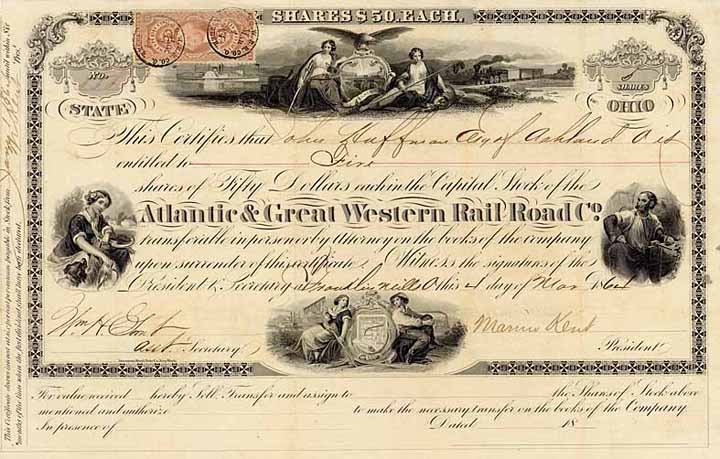 SHARES $50. EACH.
No.
SHARES
STATE
OHIO
This Certifies that John Huffman of Ashland O is
entitled to Five
shares of Fifty Dollars each in the Capital Stock of the
Atlantic & Great Western Rail Road Co.
transferable in person or by Attorney on the books of the company
upon surrender of this certificate. Witness the signatures of the
President & Secretary at Franklin Mills O this 4 day of Mar 1864
Wm H
Asst Secretary
Marvin Kent
President
For value received hereby Sell, Transfer and assign to the Shares of Stock above
mentioned and authorize to make the necessary transfer on the books of the Company.
In presence of Dated 18
This Certificate draws interest at six per cent per annum payable in Stock from
months of the time when the first dividend shall have been declared.